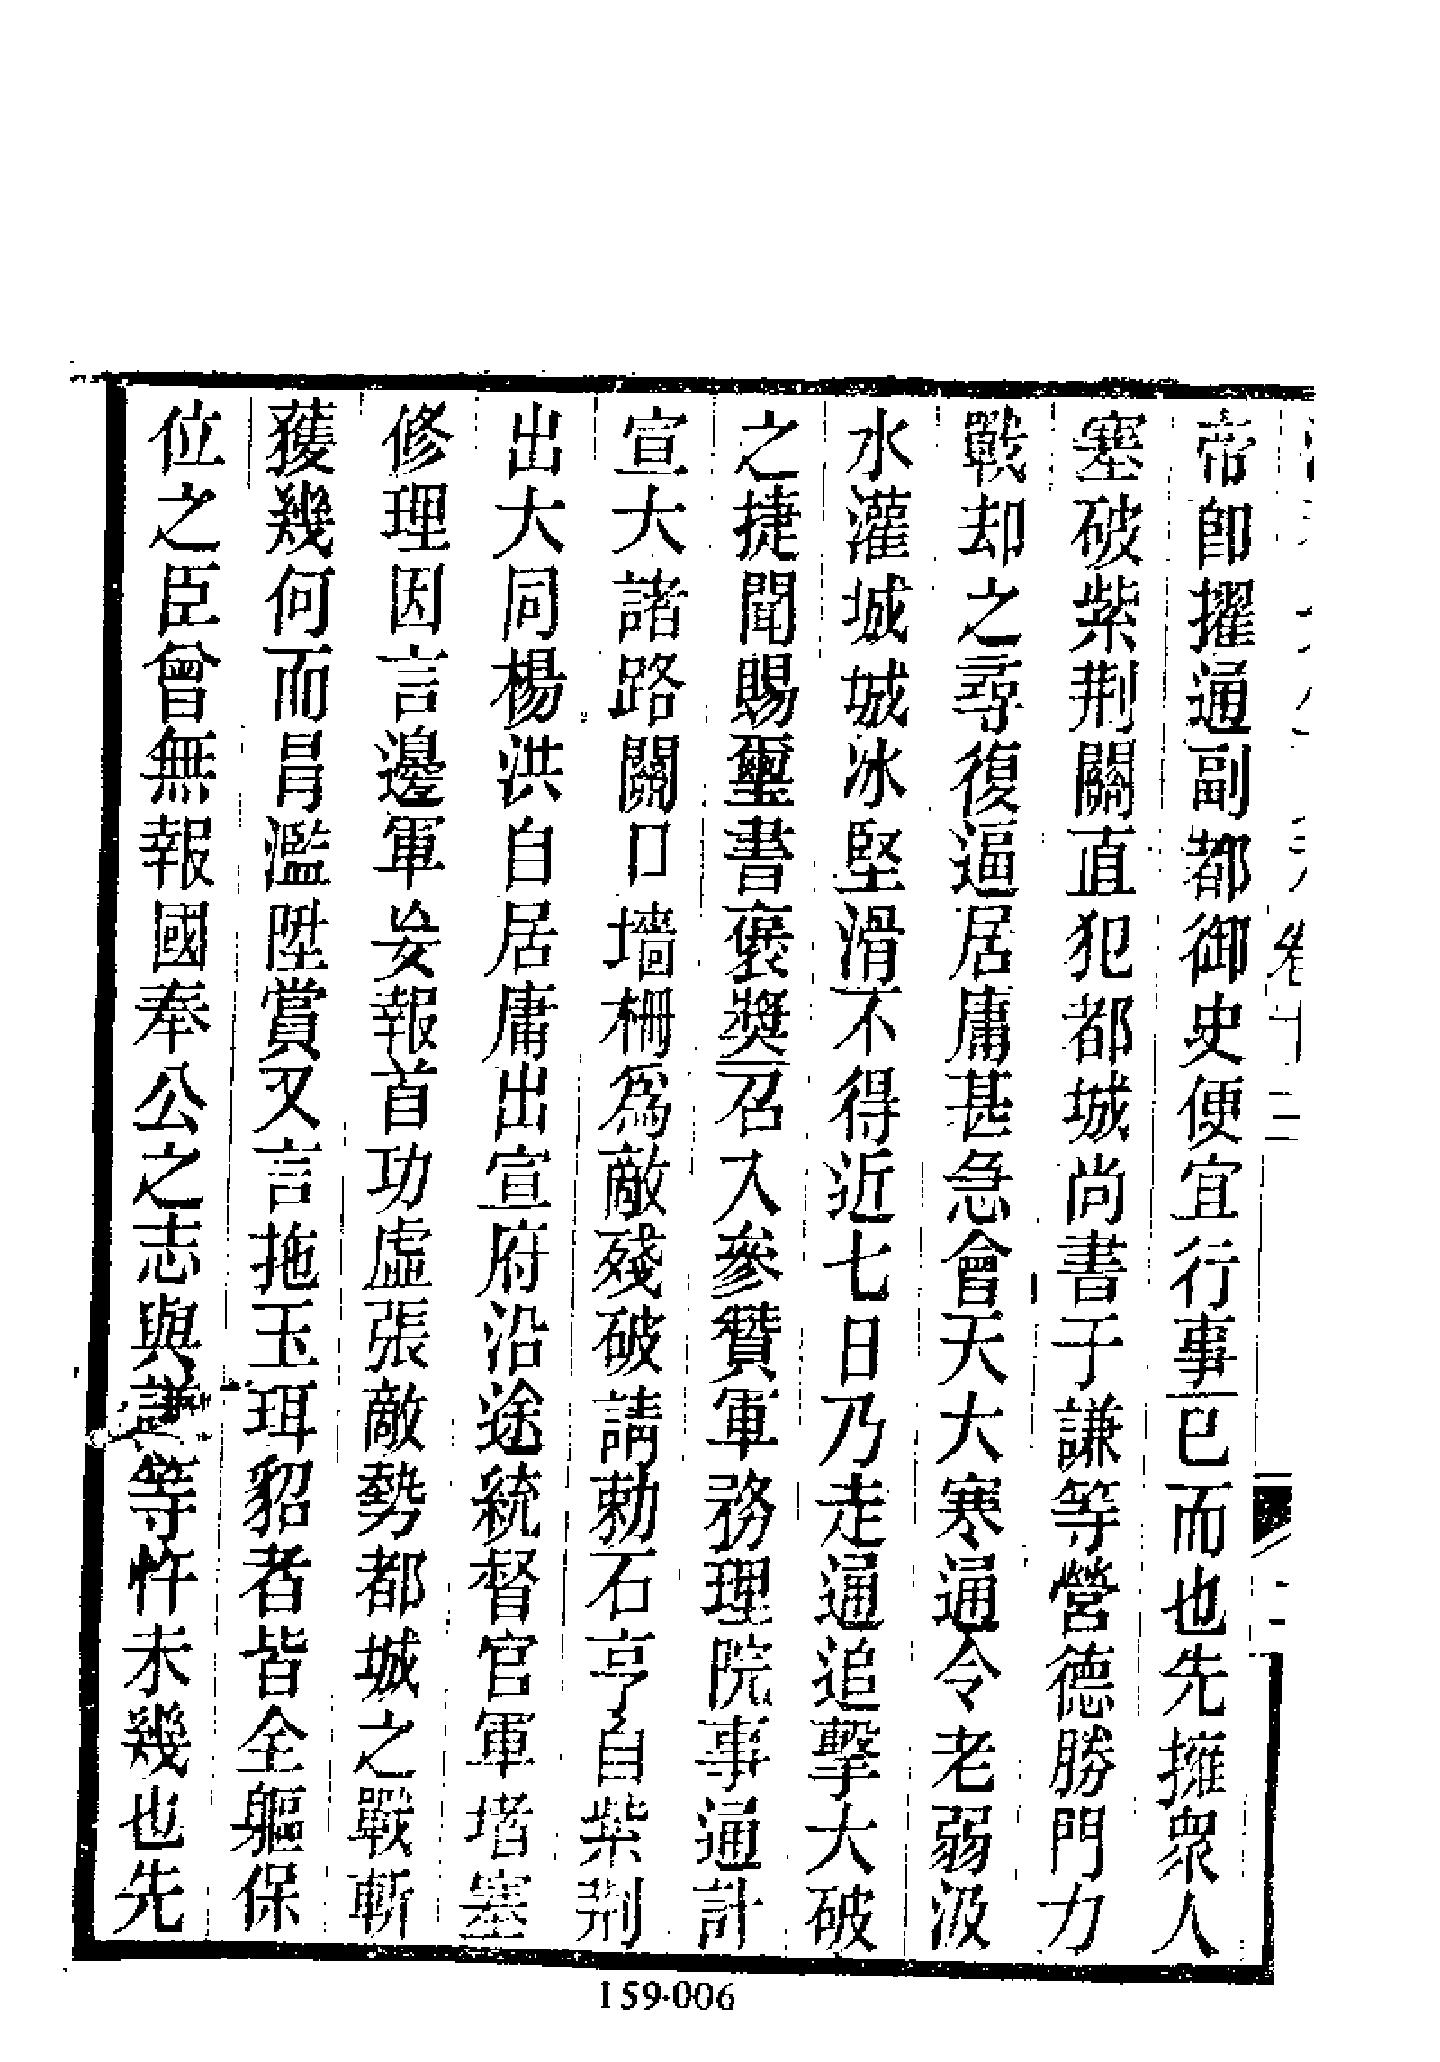 卷十二
帝卽擢通副都御史便宜行事已而也先擁衆人
塞破紫荆關直犯都城尚書于謙等營德勝門力
戰却之尋復逼居庸甚急會天大寒通令老弱汲
水灌城城冰堅滑不得近七日乃走通追擊大破
之捷聞賜璽書褒奬召入參贊軍務理院事通計
宣大諸路關口墻柵爲敵殘破請勅石亨自紫荆
出大同楊洪自居庸出宣府沿途統督官軍堵塞
修理因言邊軍妄報首功虛張敵勢都城之戰斬
獲幾何而冐濫陞賞又言拖玉珥貂者皆全軀保
位之臣曾無報國奉公之志與謙等忤未幾也先
159·006